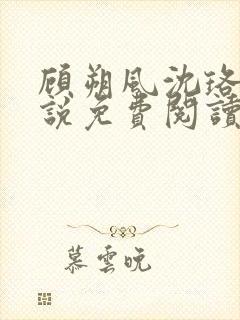 顧朔風沈珞
說免費閱讀
慕雲晚